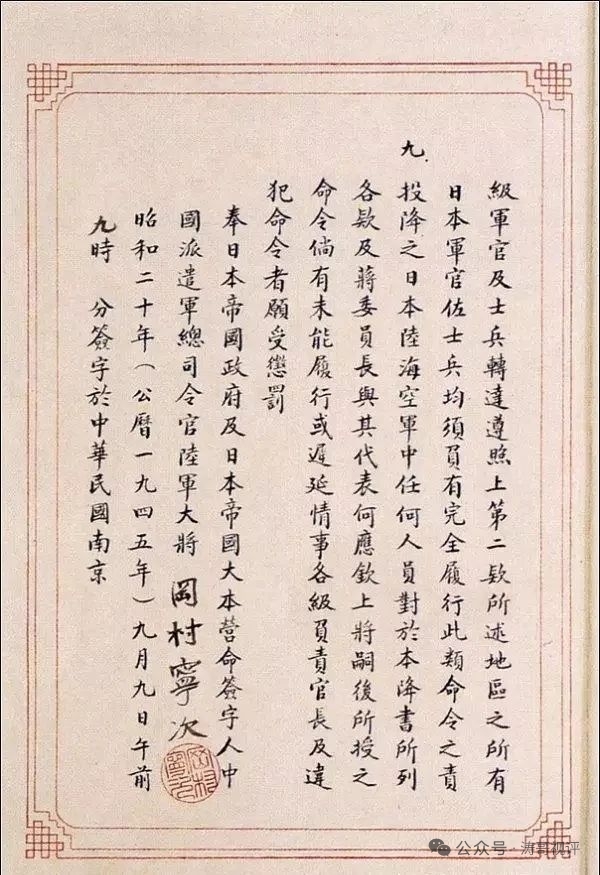 級軍官及士兵轉達遵照上第二款所述地區之所有
日本軍官佐士兵均須負有完全履行此類命令之責
九.
投降之日本陸海空軍中任何人員對於本降書所列
各款及蔣委員長與其代表何應欽上將嗣後所授之
命令倘有未能履行或遲延情事各級負責官長及違
犯命令者願受懲罰
奉日本帝國政府及日本帝國大本營命簽字人中
國派遣軍總司令官陸軍大將 岡村寧次
昭和二十年(公曆一九四五年)九月九日午前
九時 分簽字於中華民國南京
公众号·